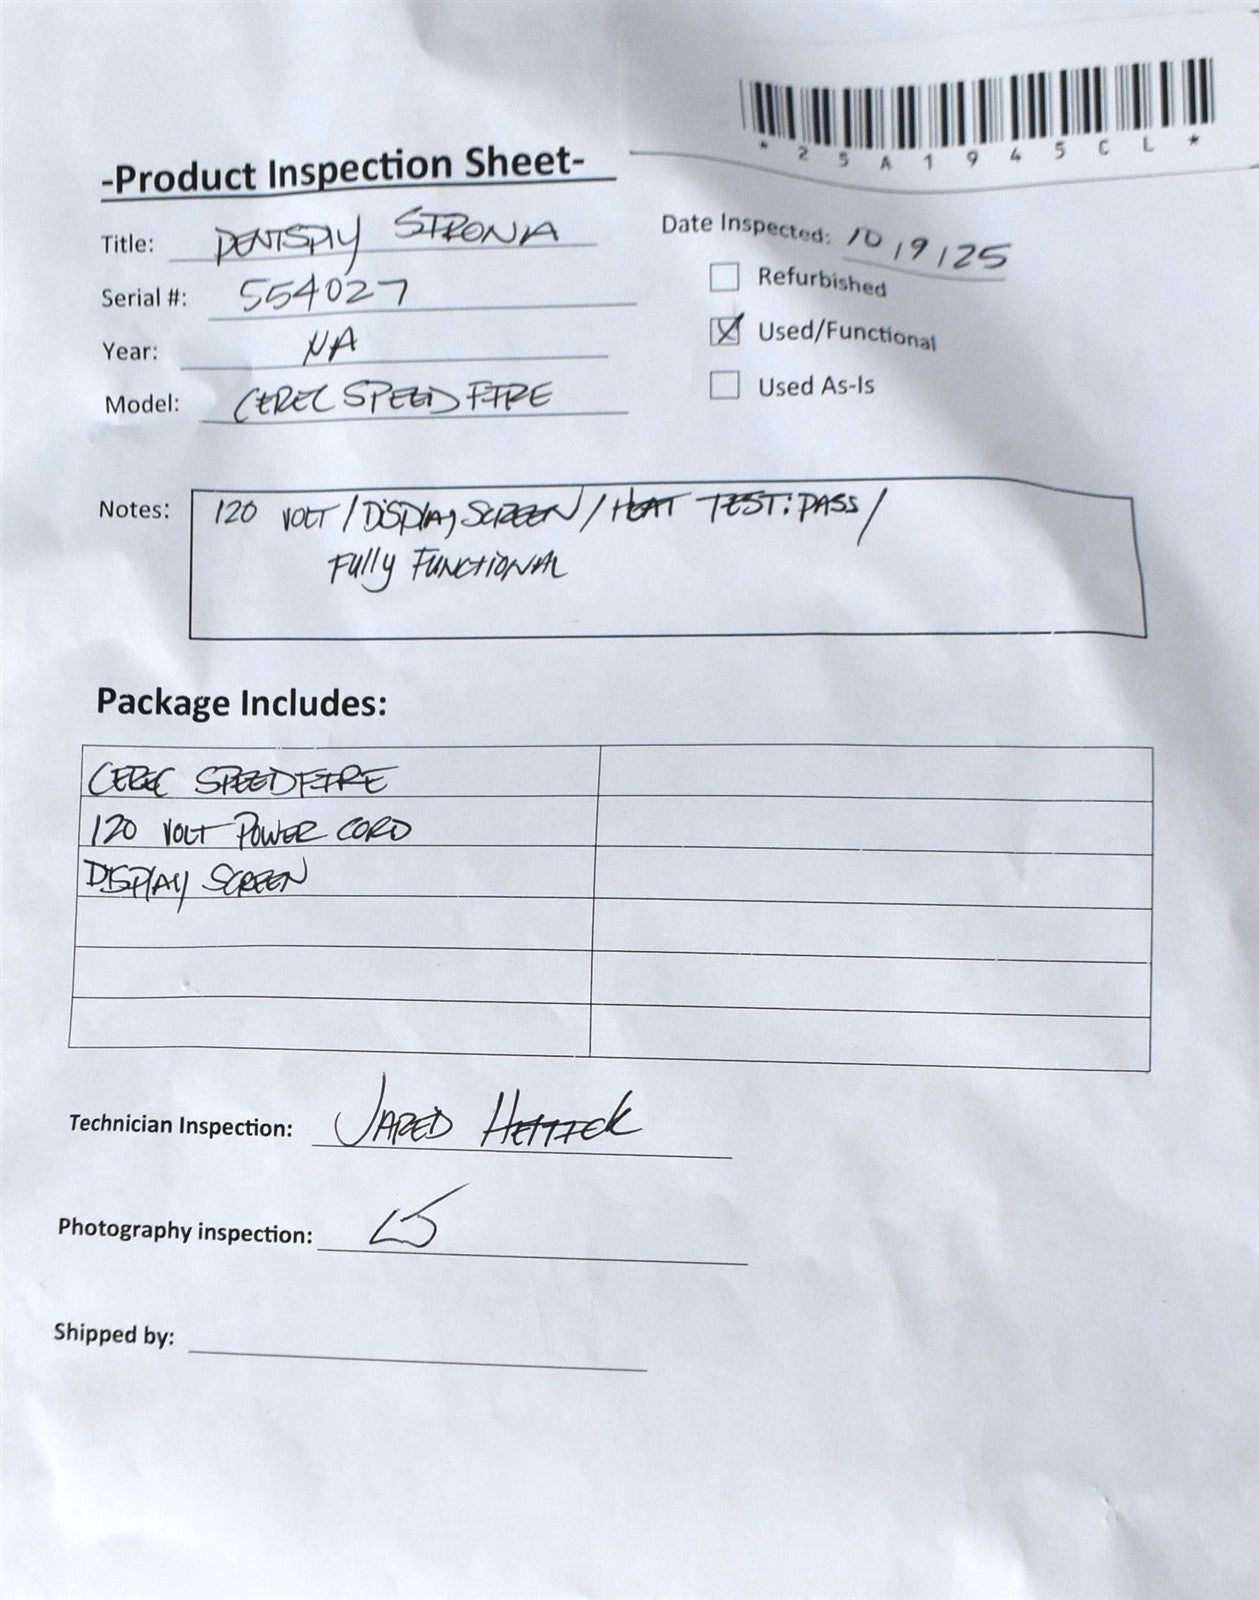 *25A1945CL*
-Product Inspection Sheet-
Title: DENTSPLY SIRONA
Date Inspected: 10/9/25
Serial #: 554027
Refurbished
Year: NA
Used/Functional
Model: CEREC SPEEDFIRE
Used As-Is
Notes: 120 VOLT / DISPLAY SCREEN / HEAT TEST: PASS /
Fully FUNCTIONAL
Package Includes:
CEREC SPEEDFIRE
120 VOLT POWER CORD
DISPLAY SCREEN
Technician Inspection: JARED HETTICK
Photography inspection: LS
Shipped by: